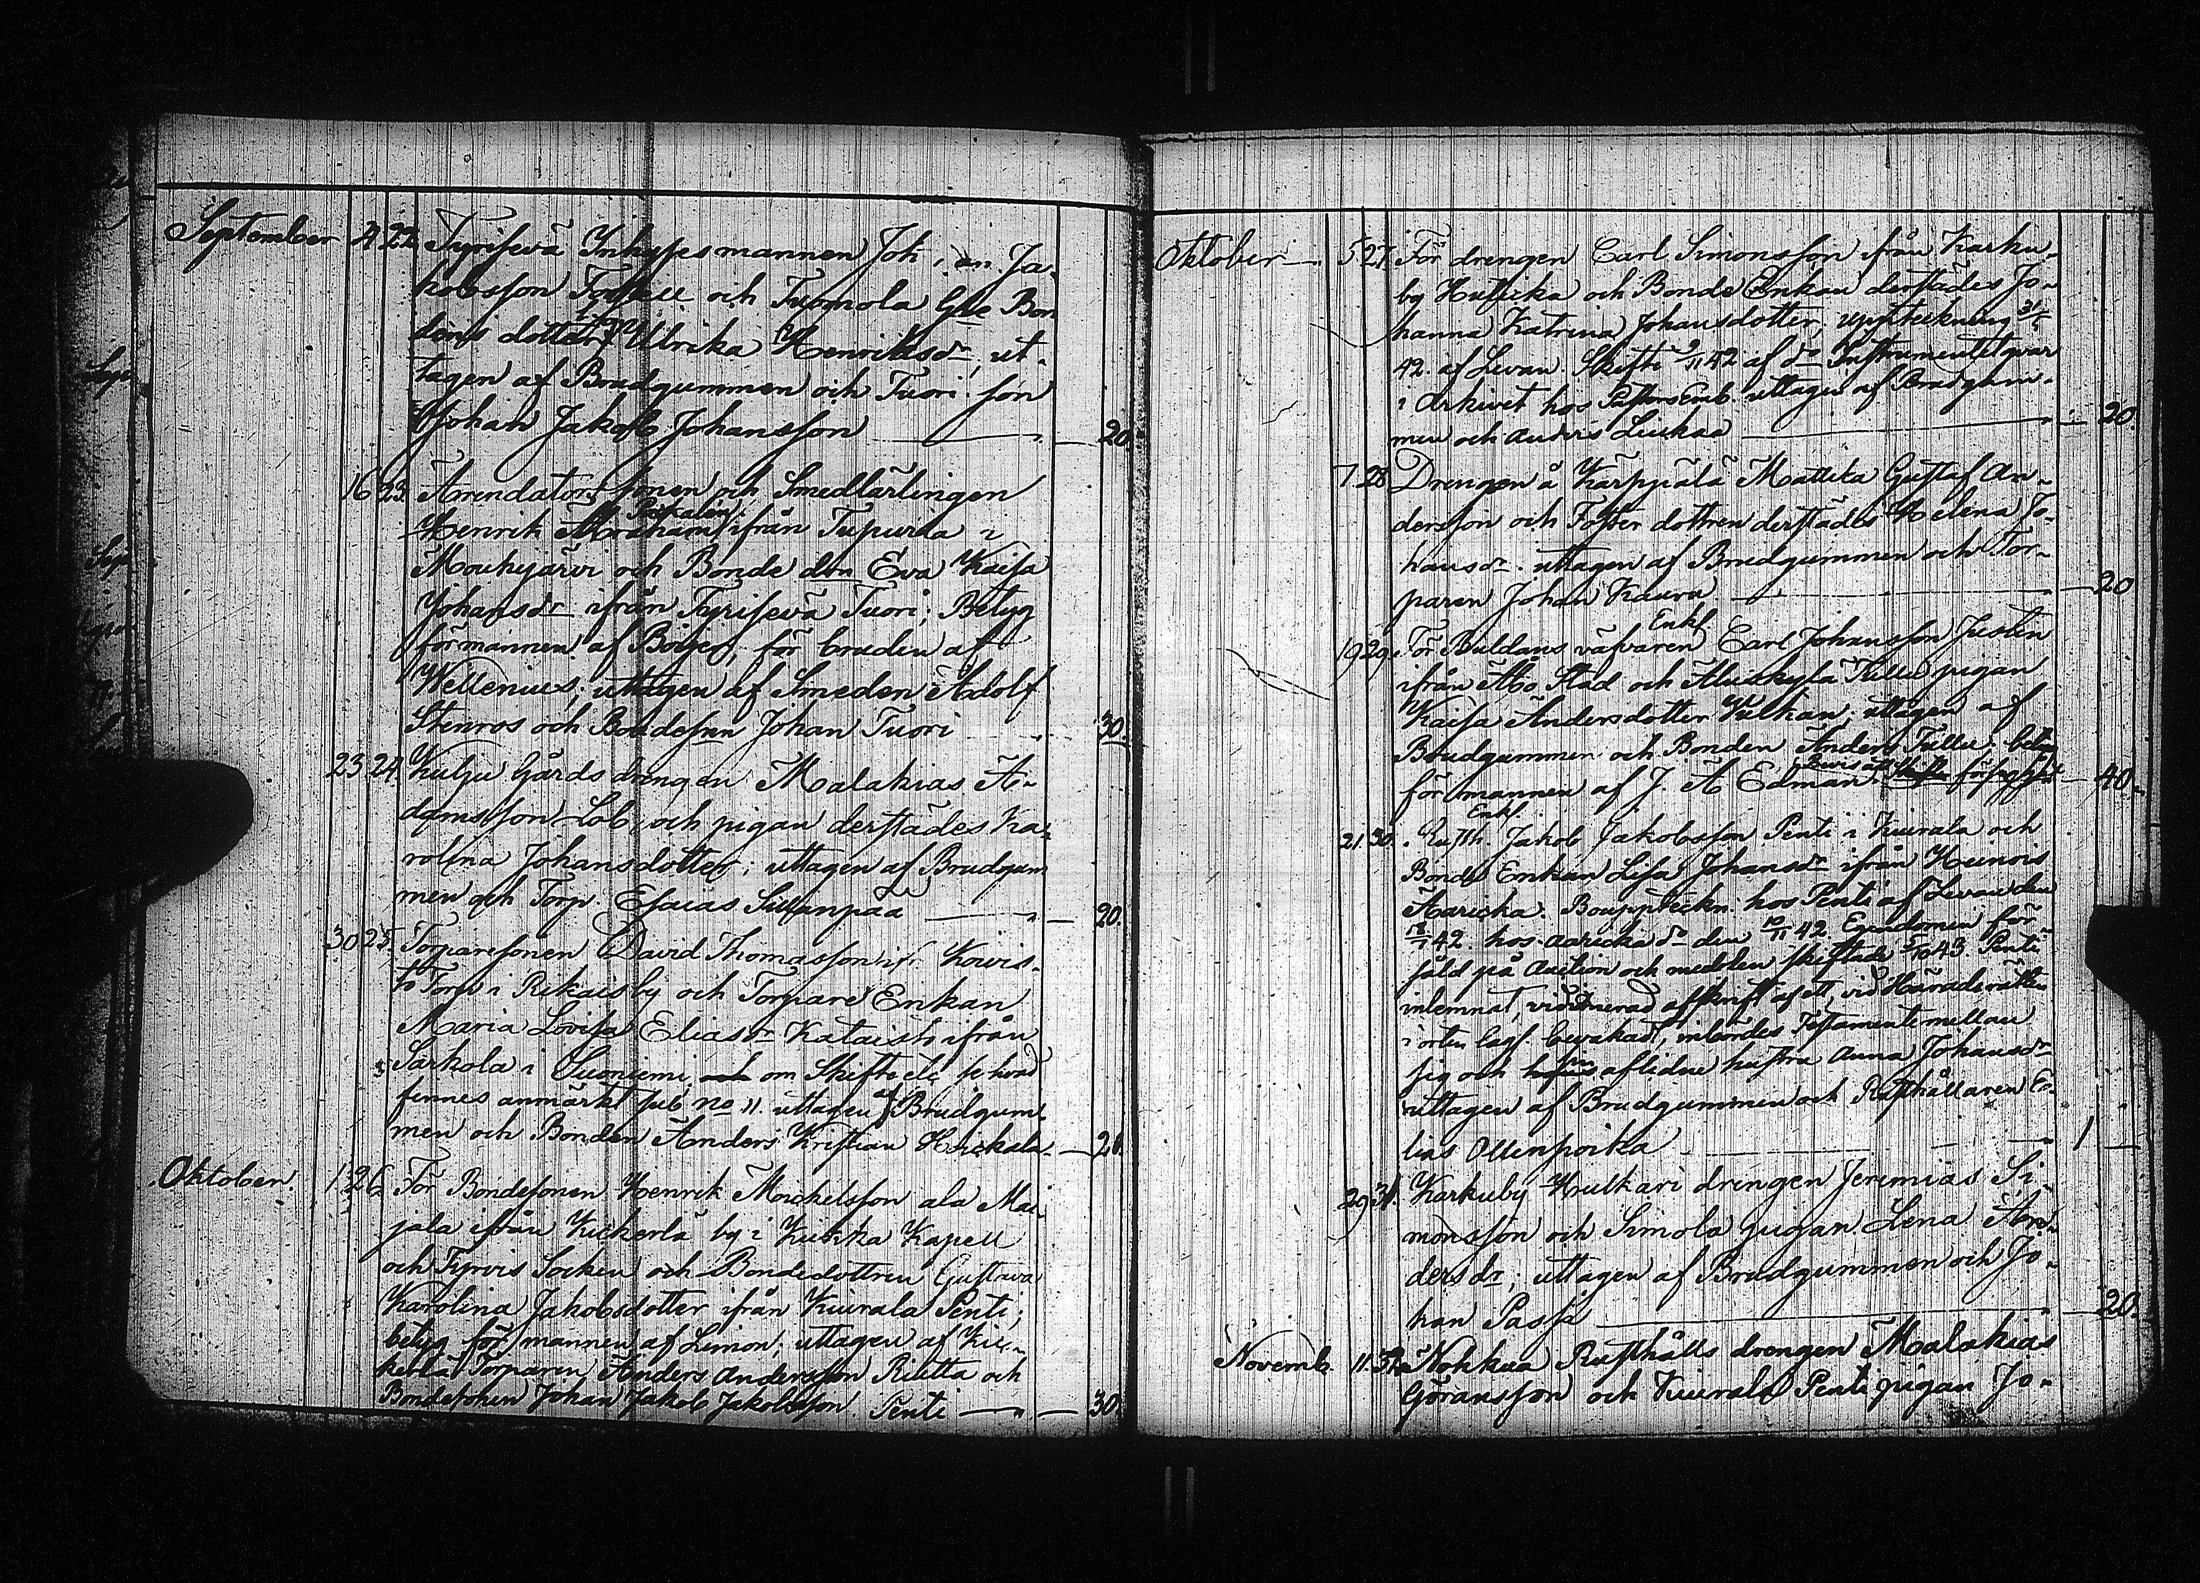 September 4 22. Tyrisevä Inhysesmannen Joh. Ja-
kobsson och Tuomola Gle Bon
dens dotter Ulrika Henriksdr, ut-
tagen af Brudgummen och Tuori son
Johan Jakob Johansson 20.
16 23. Arendators sonen och Smedlärlingen
Henrik Abraham ifrån Tupurla i
Mouhijärvi och Bonde don Eva Kaisa
Johansdr ifrån Tyrisevä Tuori; Betyg
för mannen af Böijer, för bruden af
Wellenius; uttagen af Smeden Adolf
Stenros och Bondesnen Johan Tuori 30.
23. 24. Kulju Gårds drengen Malakias A-
damsson Lob, och pigan derstädes Ka-
rolina Johansdotter; uttagen af Brudgum
men och Torp. Esaias Sillanpää 20.
30 25. Torparesonen David Thomasson if. Kouis-
to Torp i Rikais by och Torpare Enkan
Maria Lovisa Eliasdr Kataisto ifrån
Sarkola i Suoniemi, om Skifts etc se hvad
finnes anmärkt sub no 11. uttagen af Brudgum-
men och Bonden Anders Kristian Heickala 20.
Oktober. 1 26. För Bondesonen Henrik Michelsson ala Mai-
jala ifrån Kickerlä by i Kiikka Kapell
och Tyrvis Socken och Bondedottren Gustava
Karolina Jakobsdotter ifrån Kiurala Penti;
betyg för mannen af Limon; uttagen af Kic-
kerlä Torparen Anders Andersson Riietta och
Bondesonen Johan Jakob Jakobsson Penti 30.
Oktober 5 27. För drengen Carl Simonsson ifrån Karku-
by Hutticka och Bonde Enkan derstädes Jo-
hanna Katrina Johansdotter, uppteckning
42. af Levan. Skifte 9/11 42 af do Instrumentet qvar
i Arkivet hos Pastors Emb. uttagen af Brudgum-
men och Anders Liukaa 20.
7 28. Drengen å Kärppälä Mattika Gustaf An-
dersson och Foster dottren derstädes Helena Jo-
hansdr. uttagen af Brudgummen och Tor-
paren Johan Kaura 20
Enkl.
19 29. För Buldans väfvaren Carl Johansson Justen
ifrån Åbo Stad och Aluskylä Tullu pigan
Kaisa Andersdotter Kulkan, uttagen af
Brudgummen och Bonden Anders Tullu; betyg
för mannen af J. A Edman 40.
Enkl.
21. 30. Rusth. Jakob Jakobsson Penti i Kiurala och
Bonde Enkan Lisa Johansdr ifrån Heinois
Aaricka. Bouppteckn. hos Penti af Levan den
42. hos Aaricka do den 10/11 42 Egendomen för
såld på Auction och medelen skiftade 43. Penti
inlemnat, vidimerad afskrift af ett, vid Häradsrätten
i orten lagl. bevakadt, inbördes Testamente mellan
sig och aflidne hustru Anna Johansdr
uttagen af Brudgummen och Rusthållaren E-
lias Ollenpoika 1
29 31. Karkuby Krulkari drengen Jeremias Si-
monsson och Simola pigan Lena An-
dersdr; uttagen af Brudgummen och Jo-
han Passi 20.
Novemb. 11. 32. Nokkua Rusthålls drengen Malakias
Göransson och Kiurala Penti pigan Jo-